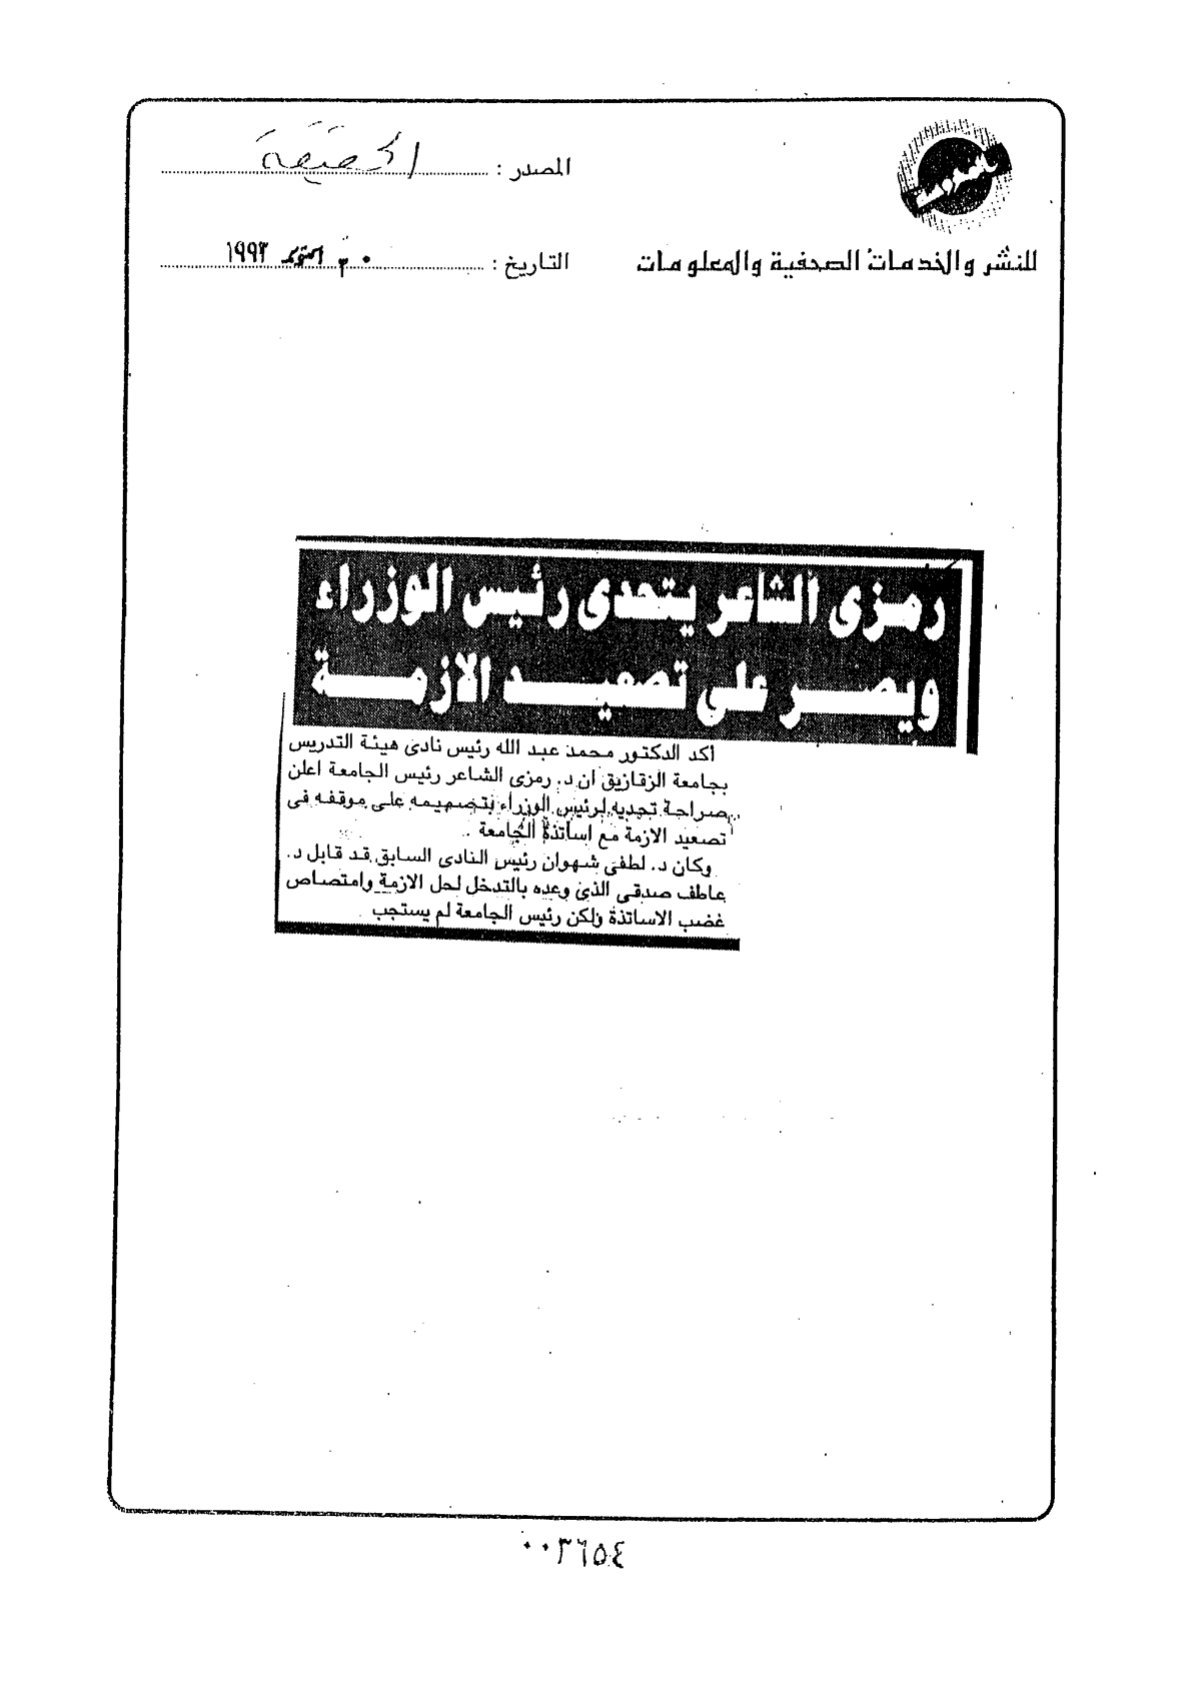 المصدر : الحقيقة
للنشر والخدمات الصحفية والمعلومات
التاريخ : أكتوبر ١٩٩٣
رمزى الشاعر يتحدى رئيس الوزراء
ويصر على تصعيد الازمة
أكد الدكتور محمد عبد الله رئيس نادى هيئة التدريس
بجامعة الزقازيق ان د. رمزى الشاعر رئيس الجامعة اعلن
صراحة تحديه لرئيس الوزراء بتصميمه على موقفه فى
تصعيد الازمة مع اساتذة الجامعة .
وكان د. لطفى شهوان رئيس النادى السابق قد قابل د.
عاطف صدقى الذى وعده بالتدخل لحل الازمة وامتصاص
غضب الاساتذة ولكن رئيس الجامعة لم يستجب
٠٠٣٦٥٤